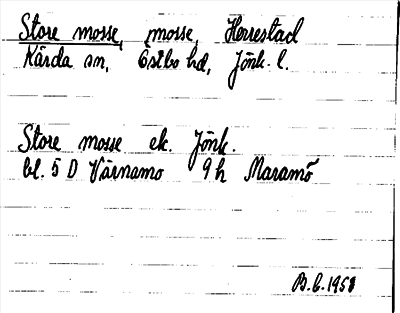 Store mosse, mosse, Herrestad
Kärda sn, Östbo hd, Jönk. l.
Store mosse ek. Jönk.
bl. 5 D Värnamo 9 h Maramö
B.E. 1958